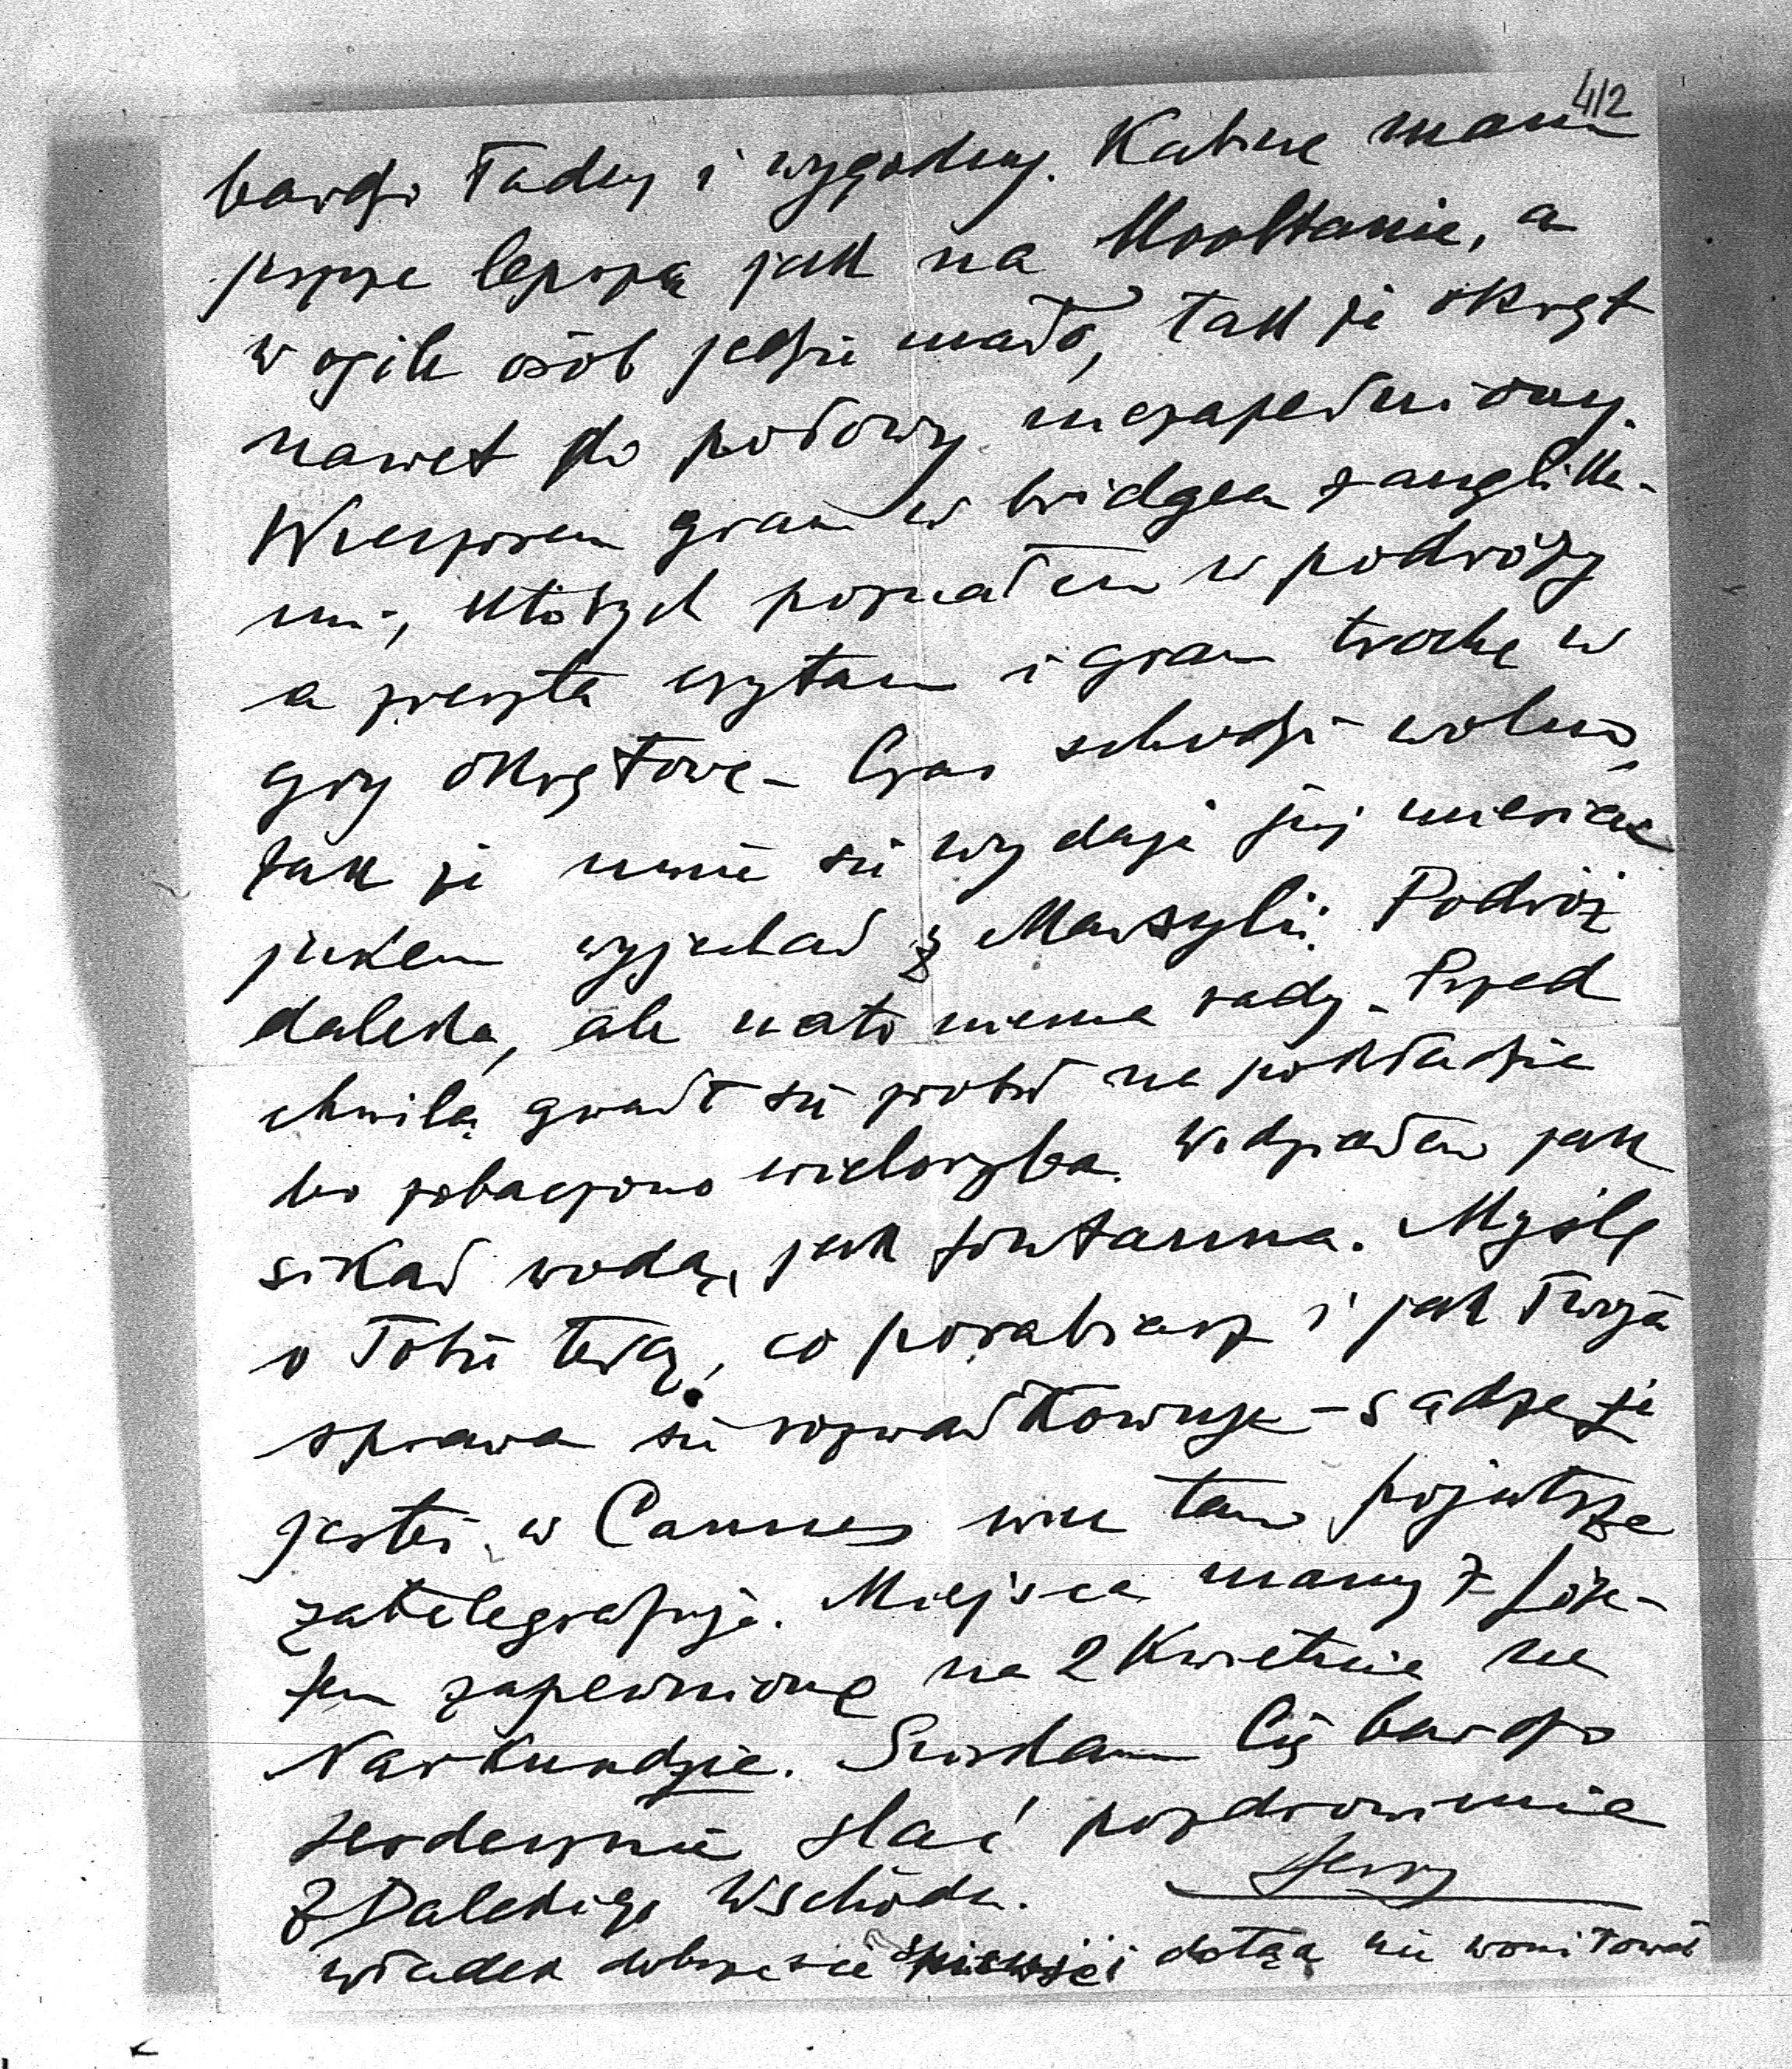 4/2
bardzo ładny i wygodny. Kabinę mam
jeszcze lepszą jak na Mooltanie, a
w ogóle osób jedzie mało, tak że okręt
nawet do połowy niezapełniony.
Wieczorem gram w bridgea z anglika-
mi, których poznałem w podróży
a zreszta czytam i gram trochę w
gry okrętowe – Czas schodzi wolno,
tak że mnie się wydaje już miesiąc
jakem wyjechał z Marsylii. Podróż
daleka, ale nato niema rady – Przed
chwilą gwałt się zrobił na pokładzie
bo zobaczono wieloryba. Widziałem jak
sikał wodą, jak fontanna. Myślę
o Tobie teraz, co porabiasz i jak Twoja
sprawa się rozwałkowuje – sądzę że
jesteś w Cannes wiec tam pojutrze
zatelegrafuję. Miejsca mamy z Józ-
fem zapewnione na 2 Kwietnia na
Narkundzie. Sciskam Cię bardzo
serdecznie ślać pozdrowienia
z Dalekiego Wschodu. Jerzy
Władek dobrze się i dotąd nie womitował